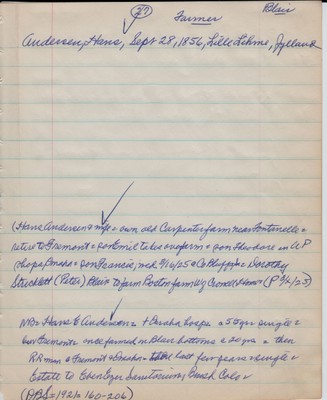 27 Farmer Blair
Andersen, Hans, Sept 28, 1856, Lille Lihme, Jylland
(Hans Andersen & wife = own old Carpenter farm near Fontenelle =
retire to Fremont = son Emil takes over farm = son Theodore in UP
shops, Omaha = son Francis, wed 9/16/25 @ Co Bluffs = Dorothy
Struckett (Peter) Blair to farm Poston farm by Crowell
NB: Hans E Andersen = + Omaha hosp = 55 yr single =
bur Fremont = once farmed in Blair bottoms = 20 yrs = then
R R man @ Fremont & Omaha = last few years single =
Estate to Ebenezer Sanitorium, Brush Colo =